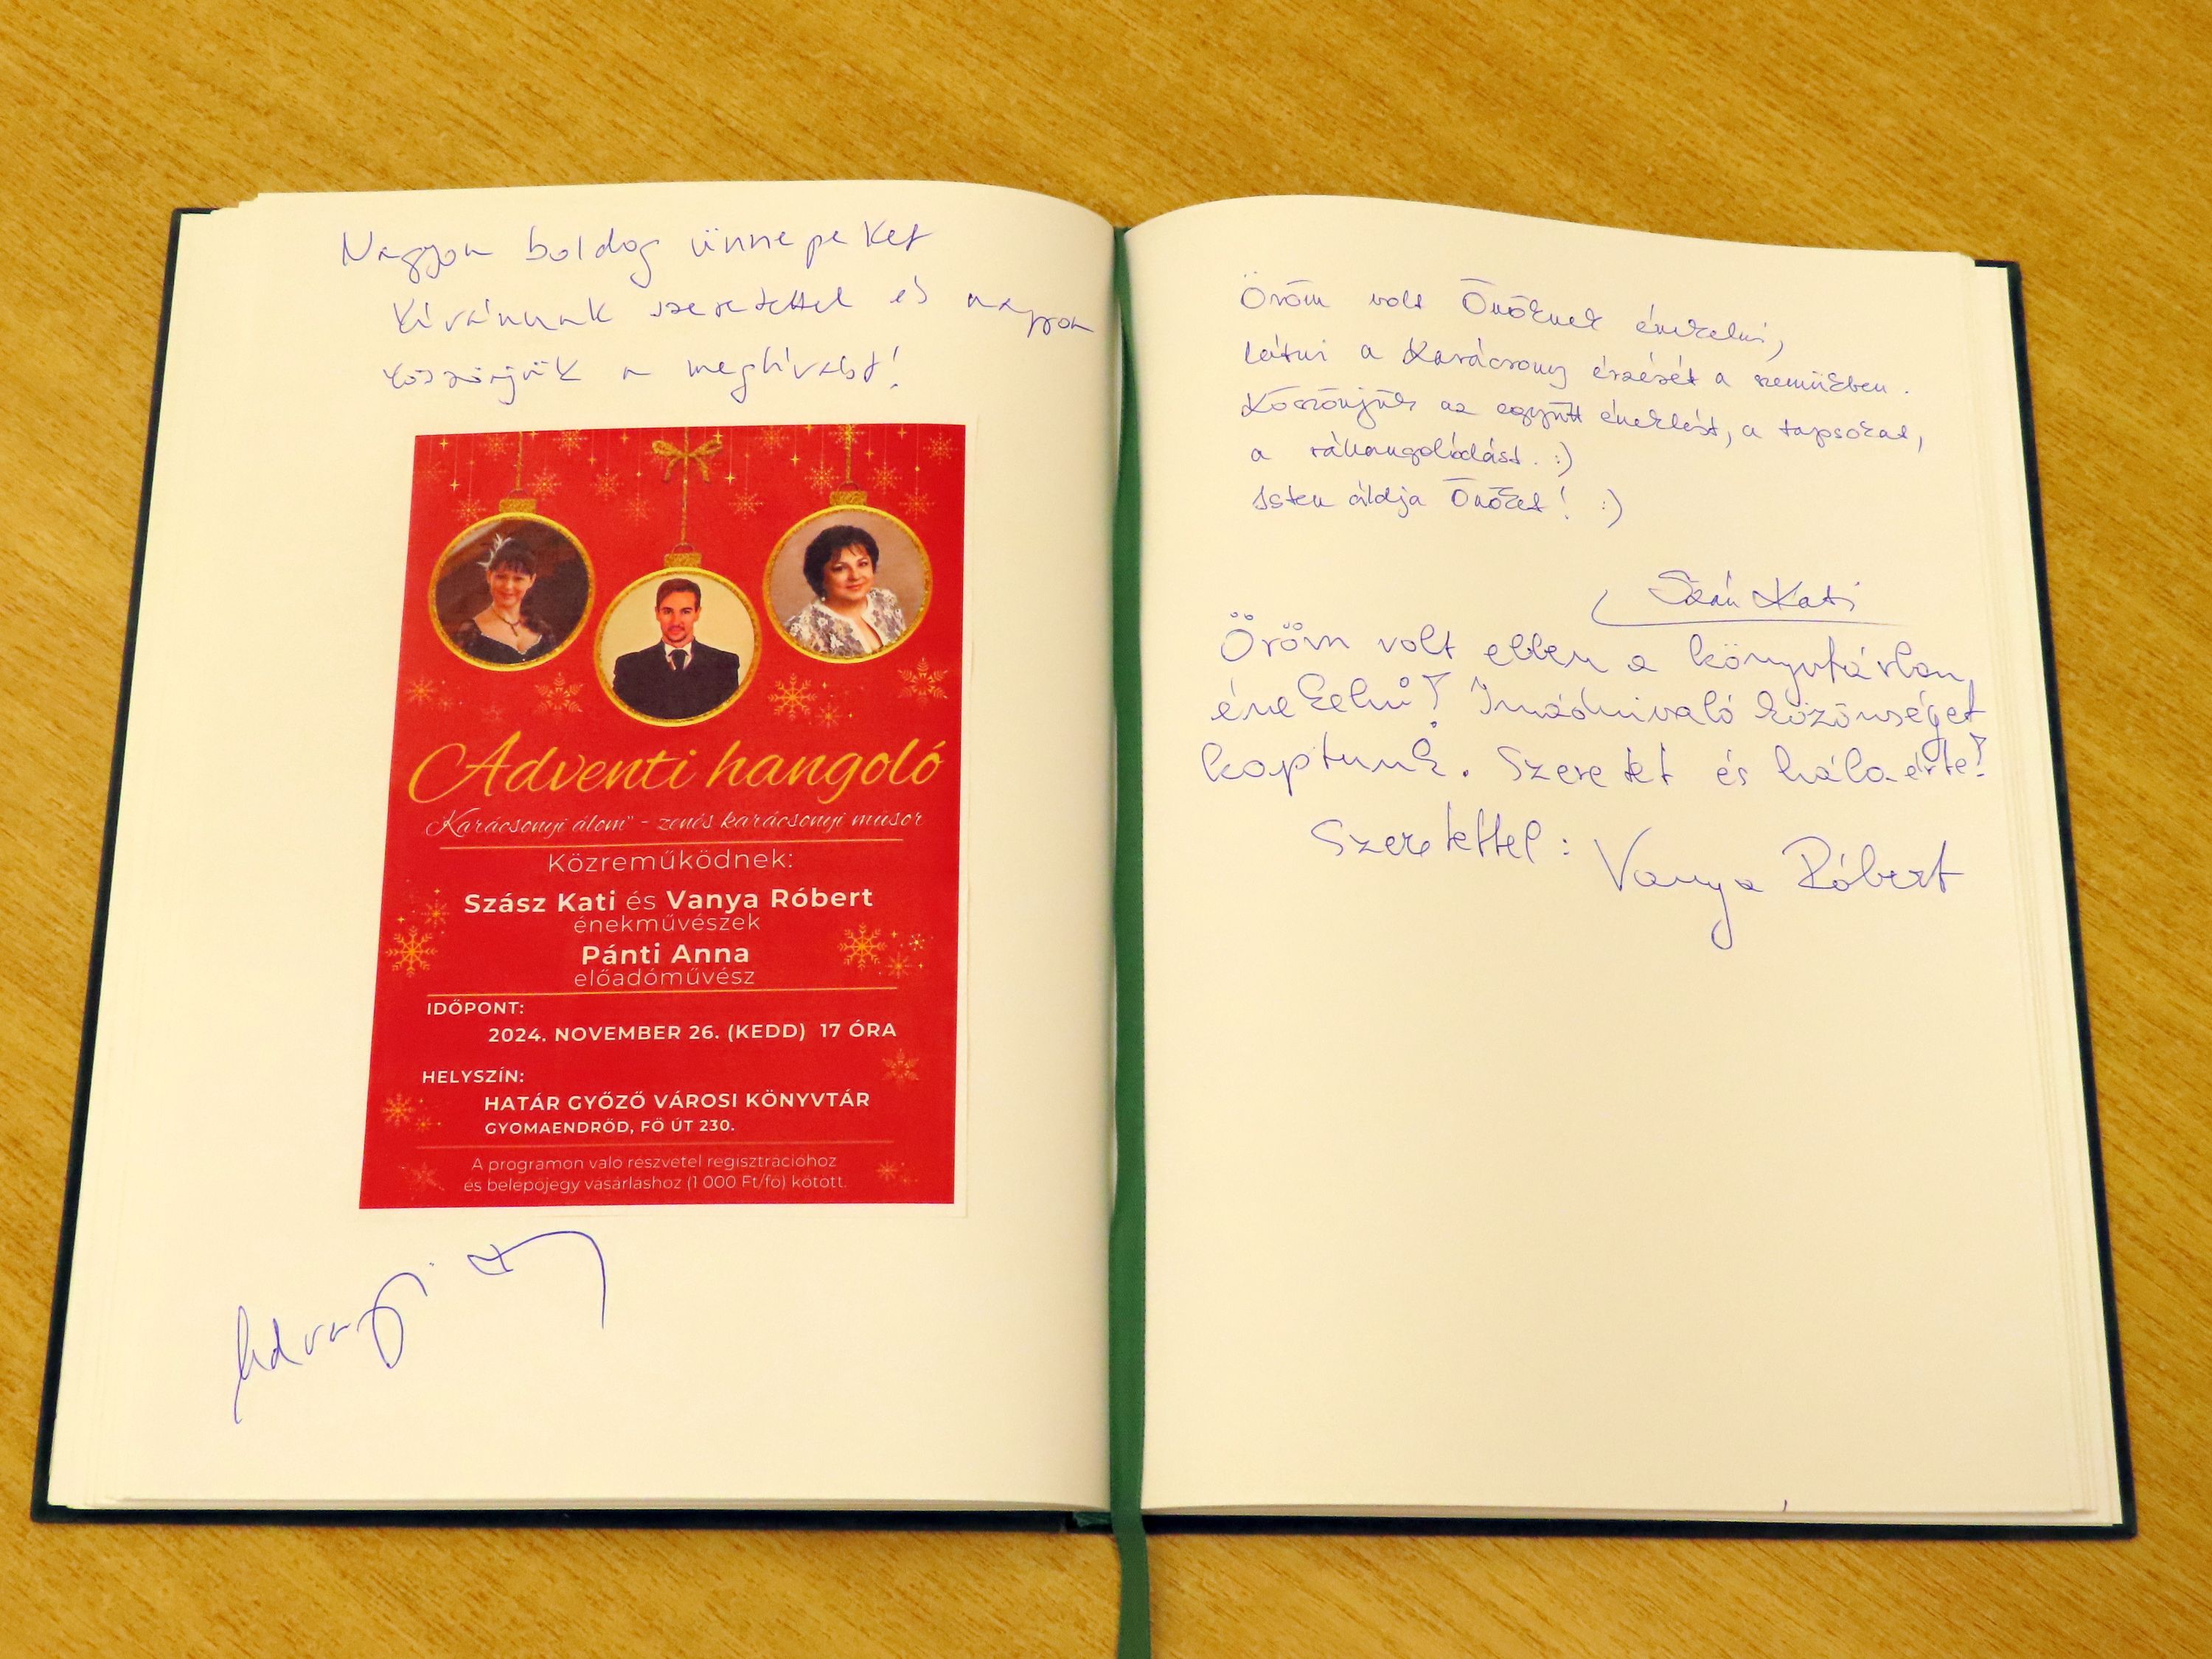 Nagyon boldog ünnepeket
kívánunk szeretettel és nagyon
köszönjük a meghívást!
Adventi hangoló
"Karácsonyi álom" - zenés karácsonyi műsor
Közreműködnek:
Szász Kati és Vanya Róbert
énekművészek
Pánti Anna
előadóművész
IDŐPONT:
2024. NOVEMBER 26. (KEDD) 17 ÓRA
HELYSZÍN:
HATÁR GYŐZŐ VÁROSI KÖNYVTÁR
GYOMAENDRŐD, FŐ ÚT 230.
A programon való részvétel regisztrációhoz
és belépőjegy vásárláshoz (1 000 Ft/fő) kötött.
Öröm volt Önöknek énekelni,
látni a Karácsony érzését a szemükben.
Köszönjük az együtt éneklést, a tapsokat,
a ráhangolódást. :)
Isten áldja Önöket! :)
Szász Kati
Öröm volt ebben a könyvtárban
énekelni! Imádnivaló közönséget
kaptunk. Szeretet és hála érte!
Szeretettel: Vanya Róbert